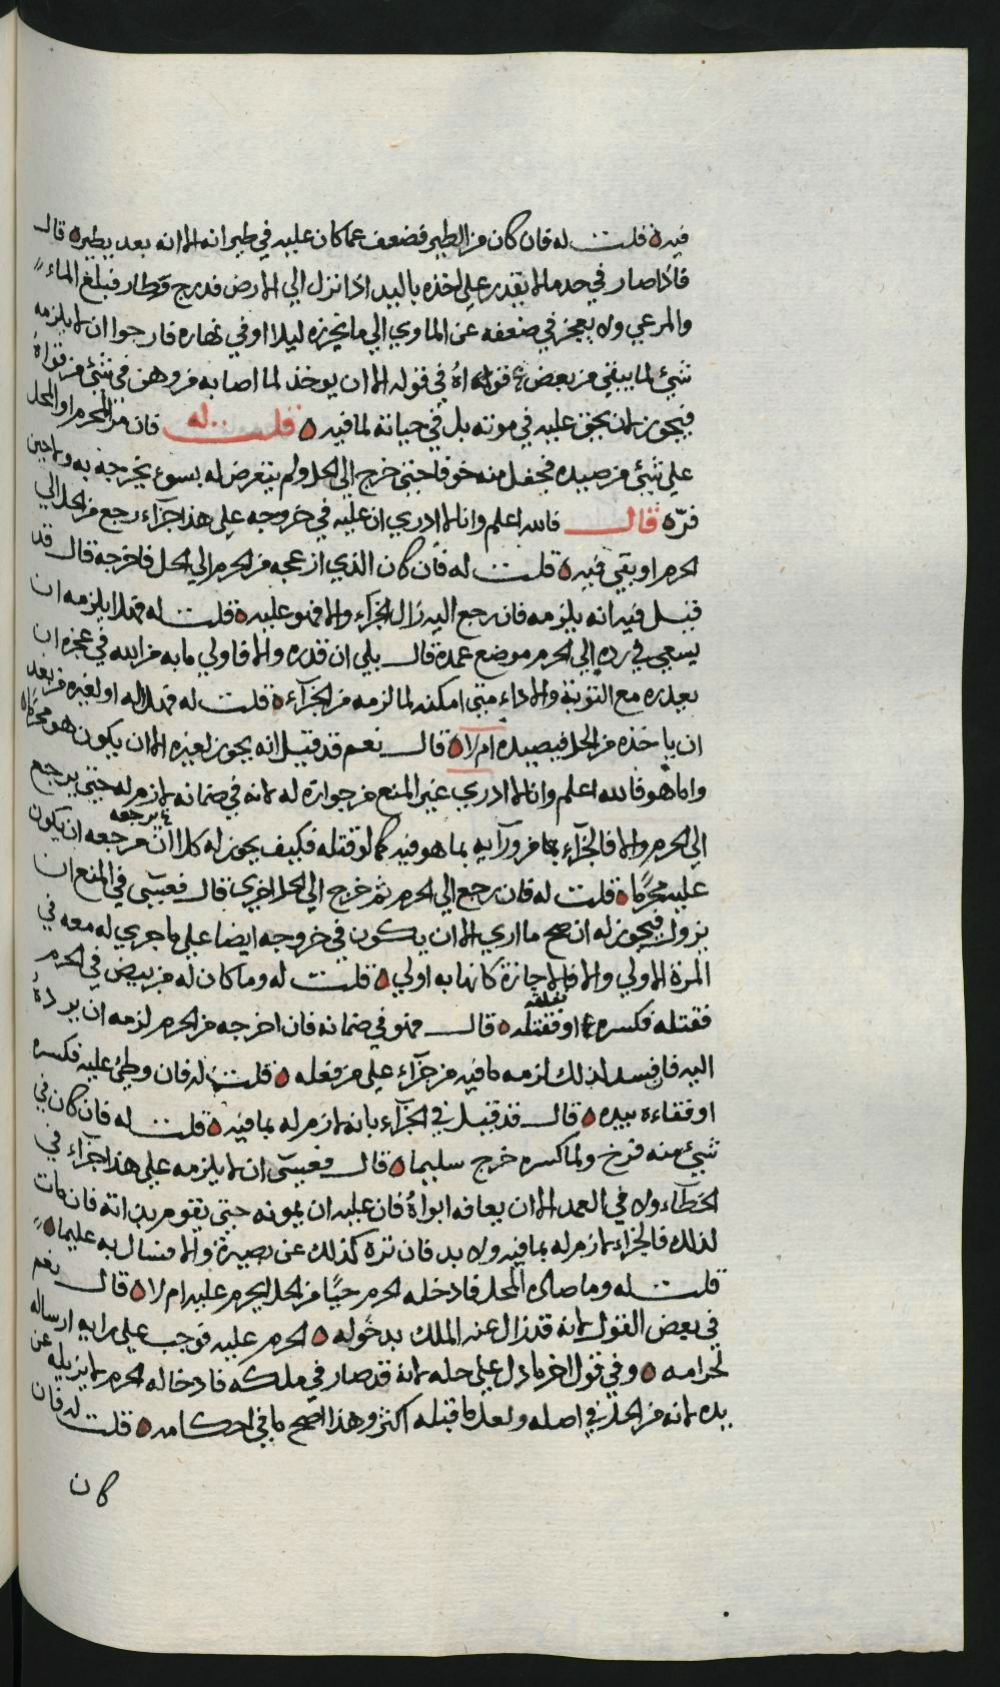 فيه قلت له فان كان من الطير فضعف عما كان عليه في طيرانه الا انه بعد يطير قال
فاذا صار في حد ما لا يقدر على اخذه باليد اذا نزل الي الارض فدرج وطار فبلغ الماء
والمرعي ولا يعجز في ضعفه عن الماوي الي ما يحرزه ليلا او في نهاره فارجوا ان لا يلزمه
شيء لما بيقي من بعض قواه في قوله الا ان يوخذ لما اصابه من وهن في شيء من قواه
فيجوز لان يحق عليه في موته بل في حياته لما فيه قلت له فان من المحرم او المحل
علي شيء من صيده فجفل منه خوفا حتى خرج الي الحل ولم يتعرض له بسوء يخرجه به ولا حين
فره قال فالله اعلم وانا لا ادري ان عليه في خروجه علي هذا جزآء رجع من الحل الي
الحرم او بقي فيه قلت له فان كان الذي ازعجه من الحرم الي الحل فاخرجه قال قد
قيل فيه انه يلزمه فان رجع اليه زال الجزآء والا فهو عليه قلت له فهل يلزمه ان
يسعي في رده الي الحرم موضع عمده قال بلي ان قدره والا فاولي ما به من الله في عجزه ان
يعذره مع التوبة والاداء متي امكنه لما لزمه من الجزآء قلت له فهل له او لغيره من بعد
ان ياخذه من الحل فيصيده ام لا قال نعم قد قيل انه يجوز لغيره الا ان يكون هو محرما
واما هو فالله اعلم وانا لا ادري غير المنع من جوازه له لانه في ضمانه لازم له حتي يرجع
الي الحرم والا فالجزآء من ورآيه بما هو فيه كما لو قتله فكيف يجوز له كلا ان مرجعه ان يكون
عليه محرما قلت له فان رجع الي الحرم ثم خرج الي الحل اخري قال فعسي في المنع ان
يزول فيجوز له ان صح ما اري الا ان يكون في خروجه ايضا علي ما جري له معه في
المرة الاولي والا فالاجازة كانها به اولي قلت له وما كان له من بيض في الحرم
فقتله فكسره او فقتله قال فهو في ضمانه فان اخرجه من الحرم لزمه ان يرده
اليه فان فسد لذلك لزمه ما فيه من جزآء علي من فعله قلت له فان وطئ عليه فكسره
او فقاءه بيده قال قد قيل في الجزآء بانه لازم له بما فيه قلت له فان كان في
شيء منه فرخ ولما كسره خرج سليما قال فعسي ان لا يلزمه علي هذا جزآء في
الخطآء ولا في العمد الا ان يعافه ابواه فان عليه ان يمونه حتى يقوم بذاته فان مات
لذلك فالجزاء لازم له بما فيه ولا بد فان تره كذلك عن بصيرة والا فسال به عليما
قلت له وما صاده المحل فادخله الحرم حيا من الحل ايحرم عليه ام لا قال نعم
في بعض القول لانه قد زال عنه الملك بدخوله الحرم عليه فوجب علي رايه ارساله
لحرامه وفي قول اخر ما دل علي حله لانه قد صار في ملكه فادخاله الحرم لا يزيله عن
يده لانه من الحل في اصله ولعل ما قبله اكثر وهذا اصح ما في احكامه قلت له فان
كان